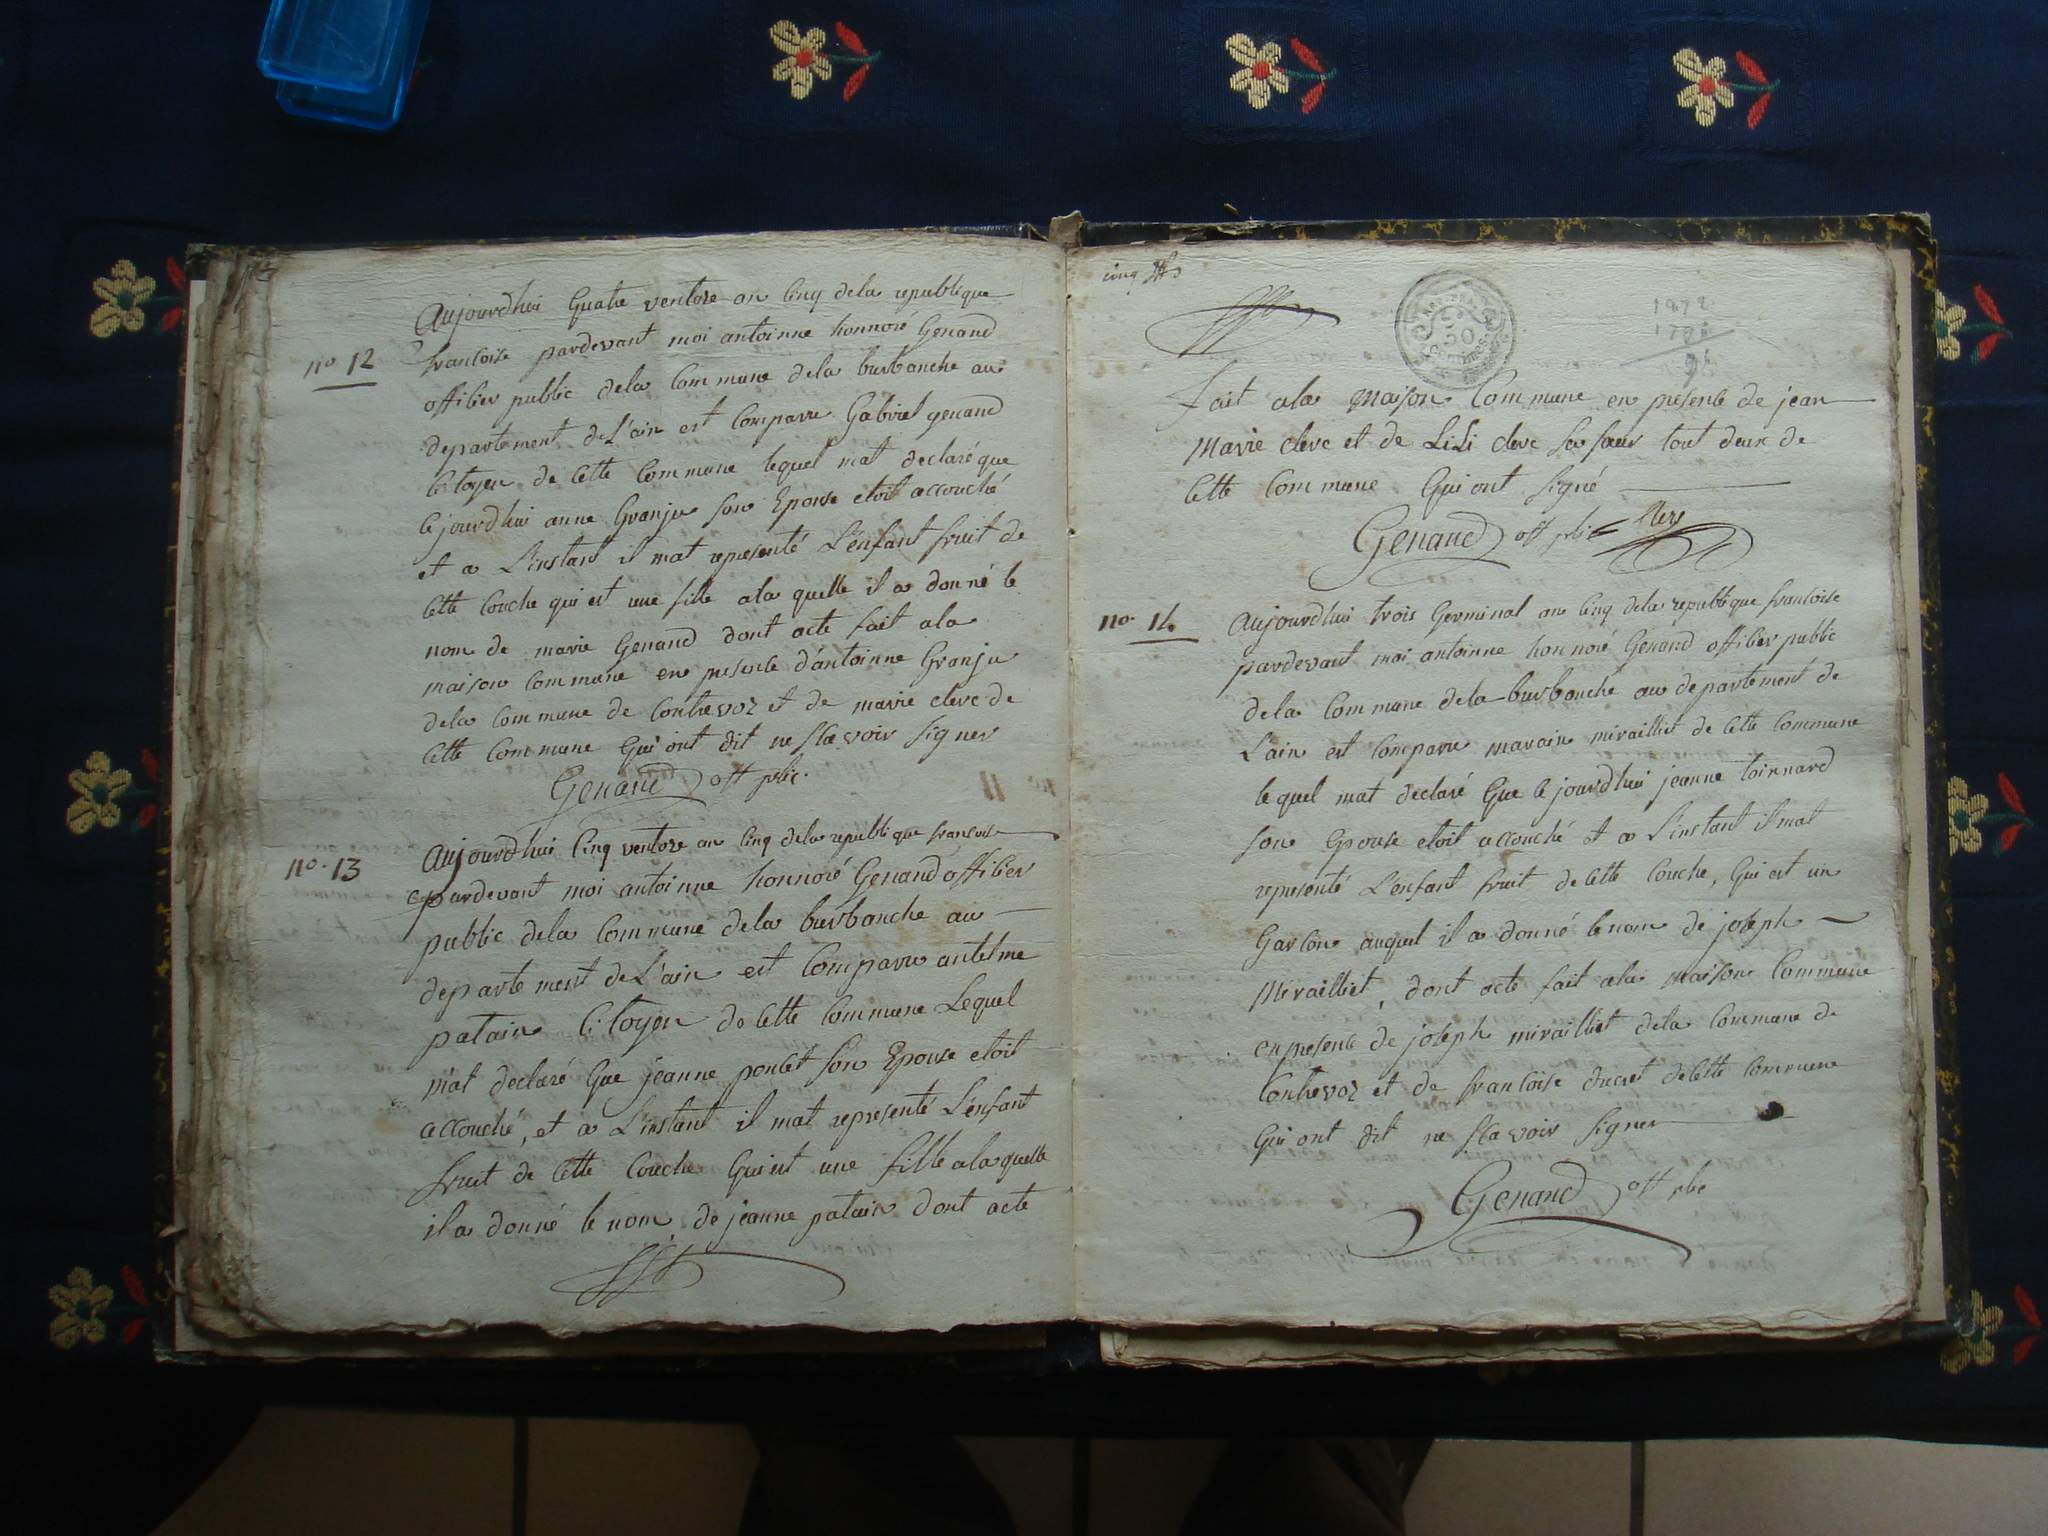 Aujourdhui Quatre ventose an Cinq dela republique
no 12
francoise pardevant moi antoinne honnoré Genand
officier public dela Commune dela burbanche au
departement de L'ain est Comparu Gabriel genand
Citoyen de Cette Commune lequel mat declaré que
Cejourdhui anne Granju son Epouse etoit accouché
et a L'instant il mat representé L'enfant fruit de
Cette Couche qui est une fille ala quelle il a donné le
nom de marie Genand dont acte fait ala
maison Commune en presence d'antoinne Granju
dela Commune de Contrevoz et de marie clerc de
Cette Commune Qui ont dit ne Scavoir Signer
Genand off plic.
no. 13
Aujourdhui Cinq ventose an Cinq dela republique francoise
pardevant moi antoinne honnoré Genand officier
public dela Commune dela burbanche au
departement de L'ain est Comparu antelme
patain Citoyen de Cette Commune Lequel
m'at declaré Que jeanne poncet Son Epouse etoit
accouché, et a L'instant il mat representé L'enfant
fruit de Cette Couche Qui est une fille ala quelle
il a donné le nom de jeanne patain dont acte
cinq
50
1872
fait ala Maison Commune en presence de jean
Marie clerc et de LiLi clerc Sa Soeur tout deux de
Cette Commune Qui ont Signé
Genand off plic Clerc
no. 14
Aujourdhui trois Germinal an Cinq dela republique francoise
pardevant moi antoinne honnoré Genand officier public
dela Commune dela burbanche au departement de
L'ain est Comparu marain miralliet de Cette Commune
le quel mat declaré Que Cejourdhui jeanne Toinnard
son Epouse etoit accouché et a L'instant il mat
representé L'enfant fruit de Cette Couche, Qui est un
Garcon auquel il a donné le nom de joseph
Miralliet, dont acte fait ala Maison Commune
en presence de joseph miralliet dela Commune de
Contrevoz et de francoise ducret de Cette Commune
Qui ont dit ne Scavoir Signer
Genand off plic